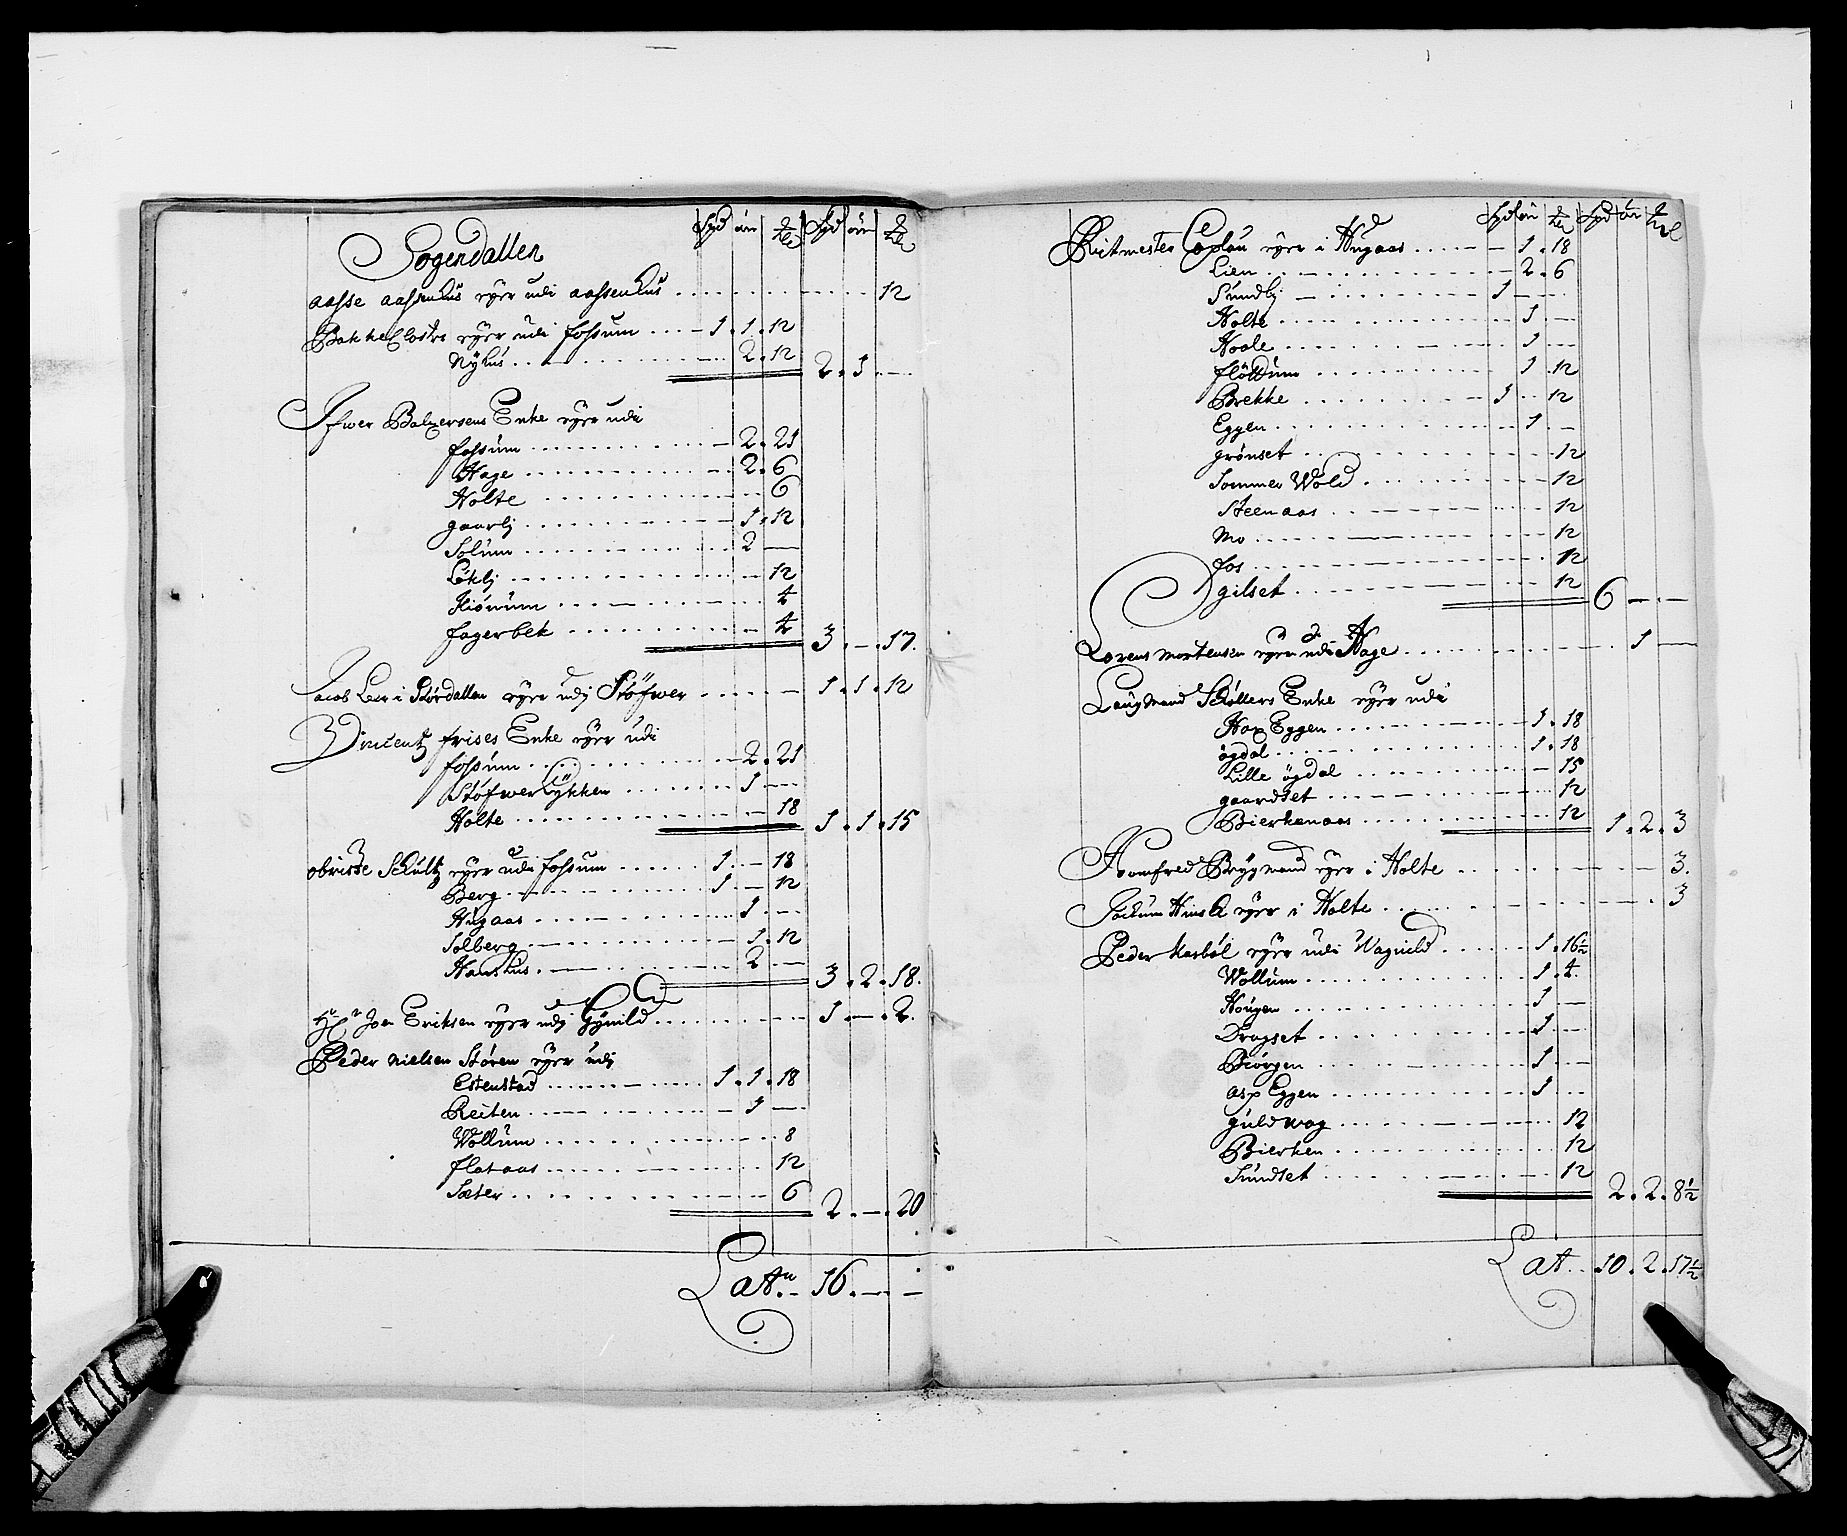 Spd ün ℳl Spd ün ℳl
Sogendallen
aasse aassenhus eyer udi aassenhus 12
Bakke Closter eyer udi fossum 1 . 1 . 12
Nyhus 2 . 12 2 . 1 . —
Ifwer Baltzersens Enke eyer udi
fossum — 2 . 21
Hage — 2 . 6
Holte 6
gaarlj — 1 . 12
Solum 2 —
Løklj 12
4
fagerbek 4 3 . — . 17.
Jacob Leer i Størdallen eyer udj Støfwer 1 . 1 . 12
Vincentz frises Enke eyer udi
fossum — 2 . 21
Støfwerlÿkken 1 —
Holte 18 1 . 1 . 15
obriste Schultz eyer udi fossum 1 . — 18
Berg 1 — 12
Hugaas 1 . —
Solberg 1 . 12
Hanshus 2 — 3 . 2 . 18.
Hr Joen Eriksen eyer udj Gynild 1 . — . 2.
Peder nielsen Støren eyer udj
Estenstad 1 . 1 . 18
Reiten — 1 —
Wollum 8
flataas 12
Sæter 6 2 . — . 20
Latn. – 16 . — . —
Spd ün ℳl Spd ün ℳl
Ritmester Coplau eyer i Hugaas — 1 . 18
Lien — 2 . 6
Sundlj 1 — —
Holte 1 . —
Hoale 1 —
fløttum 1 12
Brekke 1 . . 12
Eggen 1 . —
grønset 12
Sommer Wold 12
Steenaas 12
Mo 12
fos 12
gilset 12 6 — . —
Lorens Mortensen eyer udi Hage 1 —
Laugmand Schøllers Enke eyer udi
Hax Eggen 1 . 18
ögdal 1 . 18
Lille ögdal — 15
gaardset 12
Bierkenaas 12 1 . 2 . 3
Brÿgmand eyer i Holte 3.
Jochum Hinsch eyer i Holte 3
Peder Masböl eyer udi Wagnild 1 . 16½
Wollum 1 . 4.
Hougen 1 —
Dragset 1 —
Biörgen 1 —
asp Eggen 1 . .
guldwag 12
Bierken 12
Sundset 12 2 . 2 . 8½
Lat . 10 . 2 . 17½